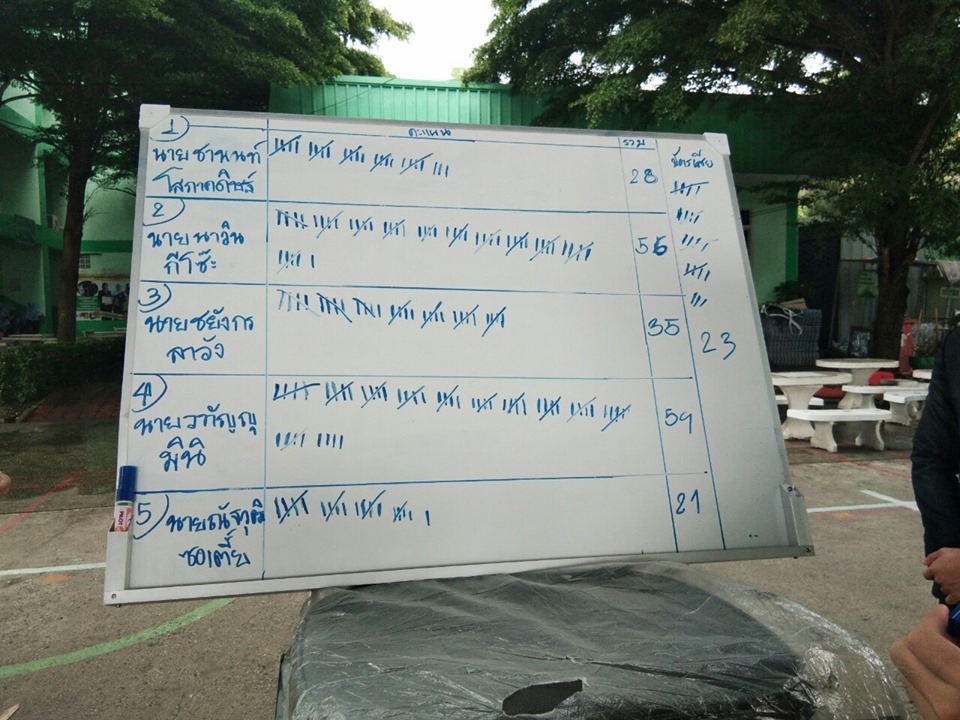 คะแนน
รวม
บัตรเสีย
1
นายชานนท์
โสภาคดิษฐ์
28
2
นายนาวิน
กีโซ๊ะ
56
3
นายชยังกร
ลาวัง
35
23
4
นายวทัญญู
มินิ
59
5
นายณัฐวุฒิ
ซอเตี้ย
21
PILOT